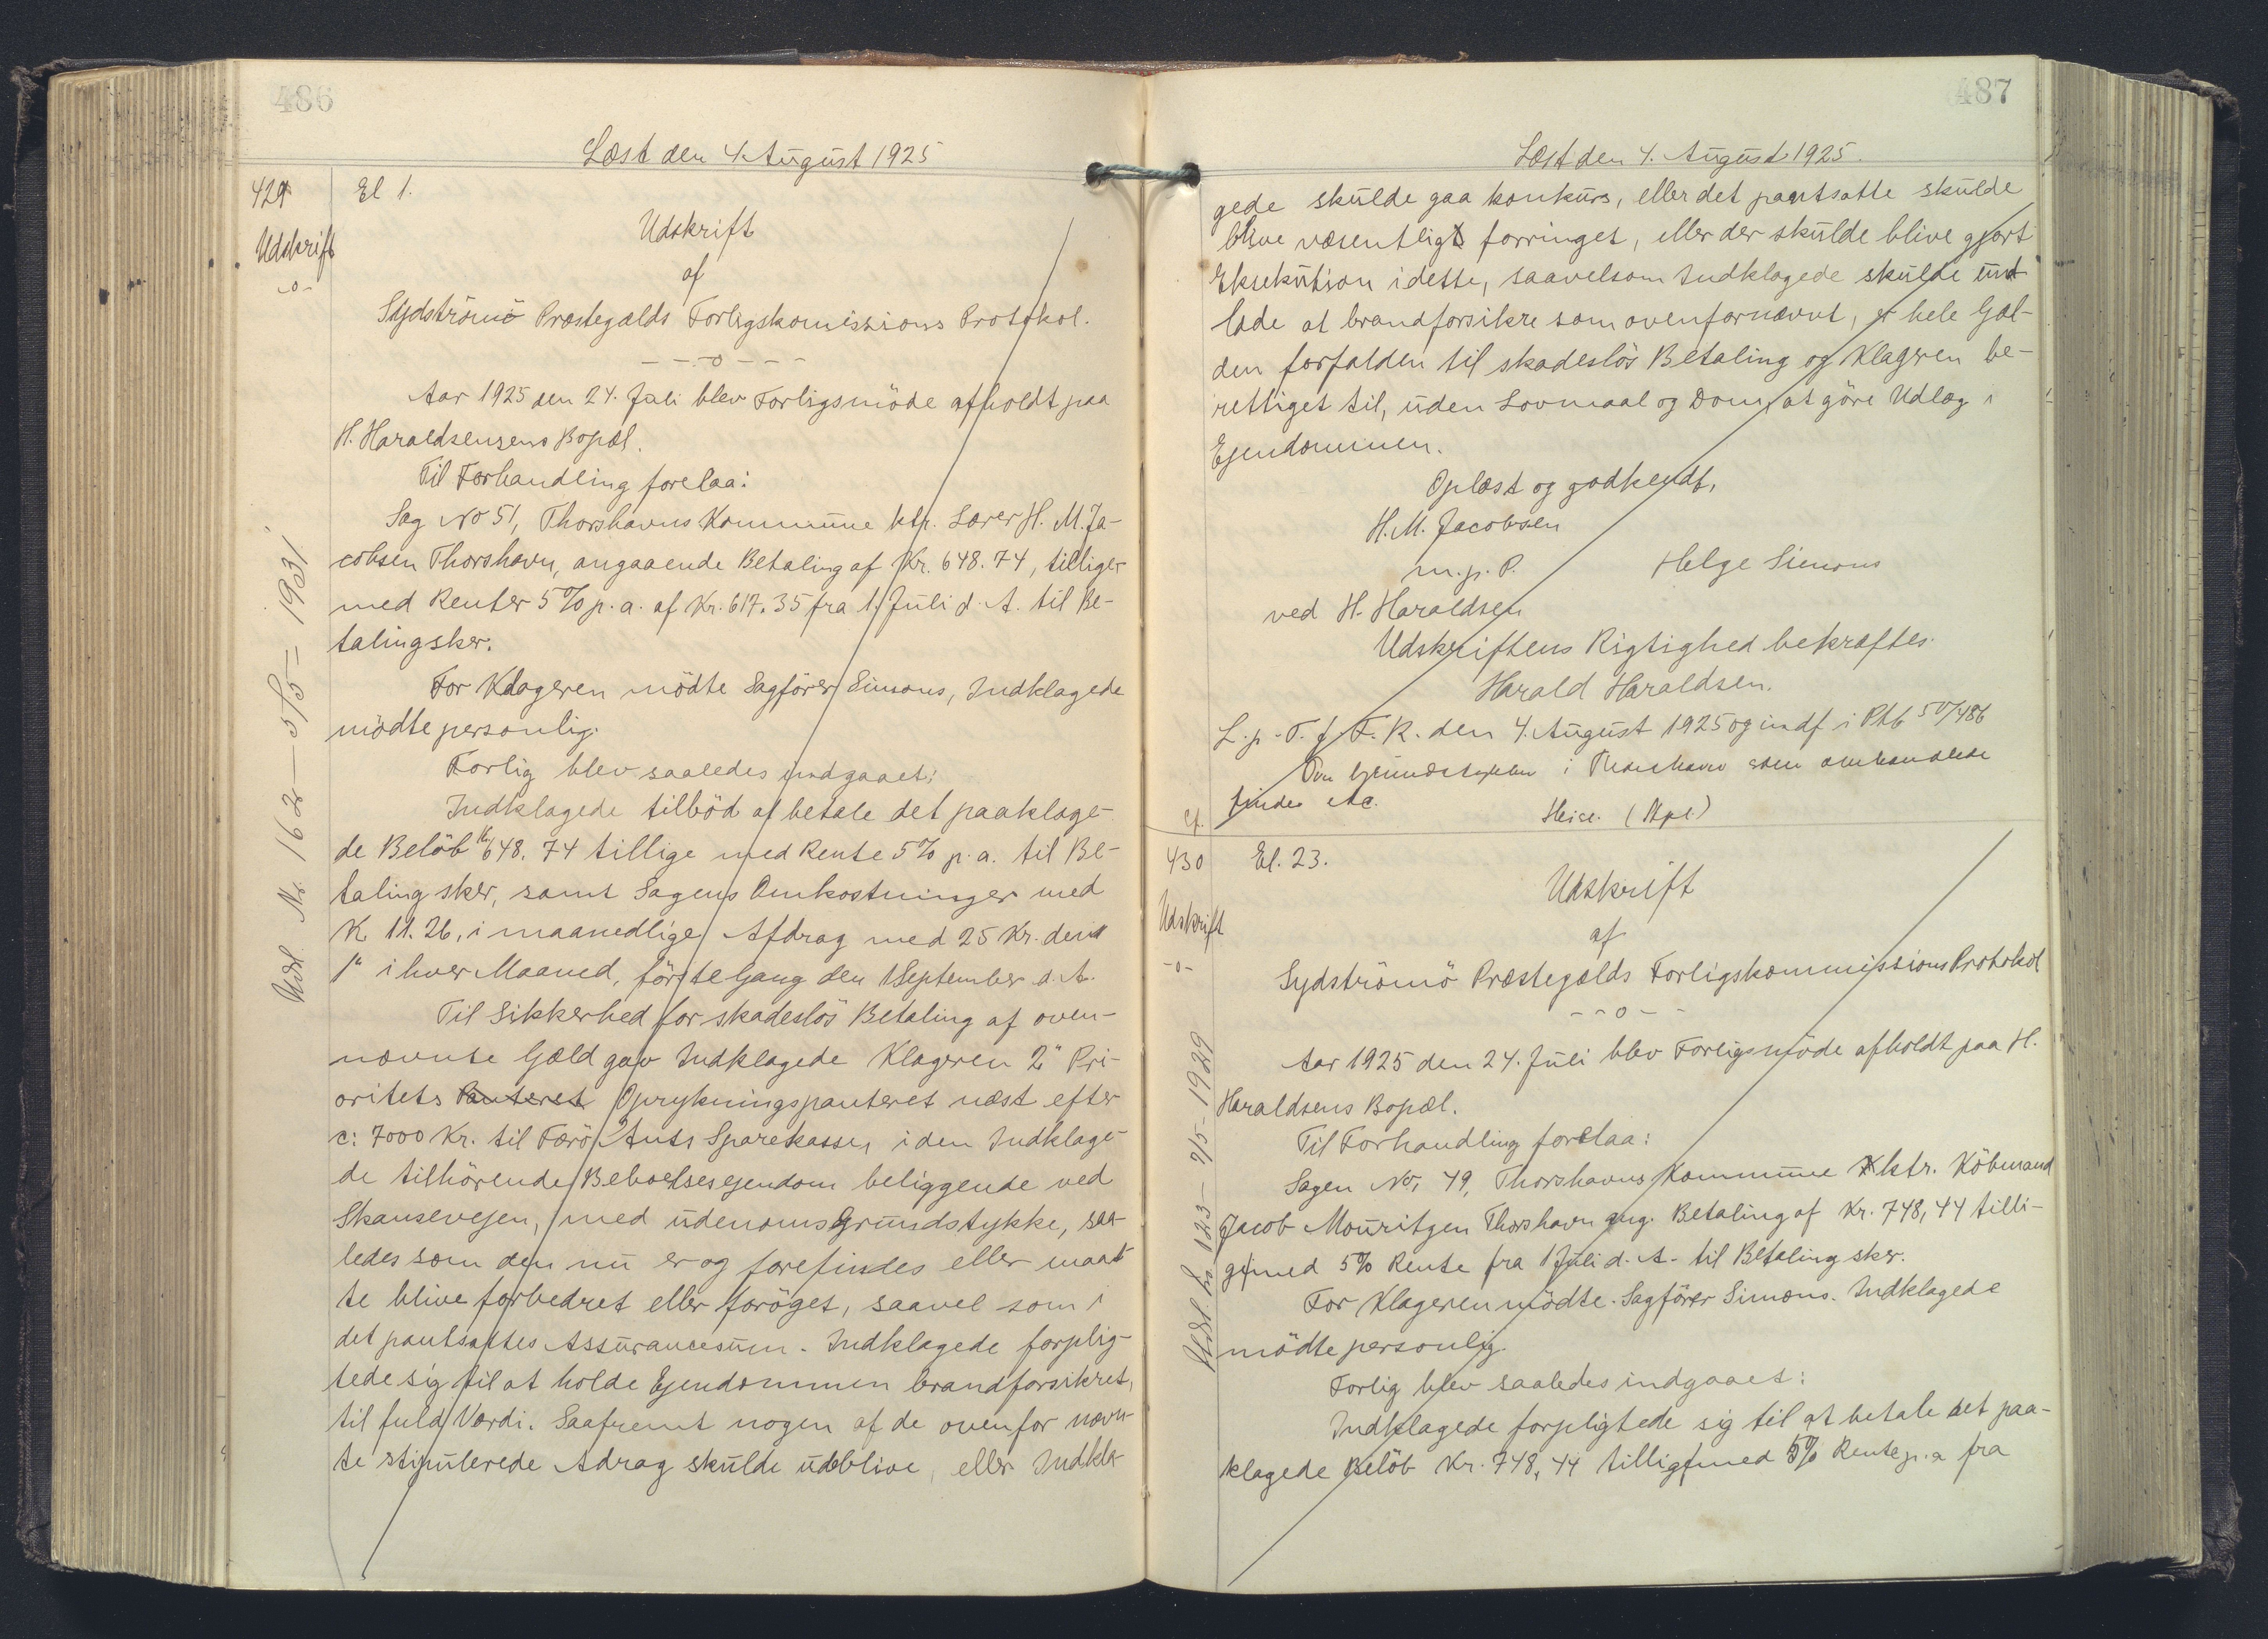 486
Læst den 4. August 1925
429
Udskrift
-o-
El 1.
Udskrift
af
Sydströmö Præstegælds Forligskomissions Protokol.
- - - o - - -
Aar 1925 den 24. Juli blev Forligsmöde afholdt paa
H. Haraldsensens Bopæl.
Til Forhandling forelaa:
Sag No 51, Thorshavns Kommune ktr. Lærer H. M. Ja-
cobsen Thorshavn, angaaende Betaling af Kr. 648.74, tilliger
med Renter 5% p.a. af Kr. 617.35 fra 1. Juli d. A. til Be-
talingsker.
For Klageren mödte Sagförer Simons, Indklagede
mödte personlig.
Forlig blev saaledes indgaaet:
Indklagede tilböd at betale det paaklage-
de Belöb K 648.74 tillige med Rente 5% p.a. til Be-
taling sker, samt Sagens Omkostninger med
K 11.26, i maanedlige Afdrag med 25 Kr. den
1" i hver Maaned, förste Gang den 1 September d. A.
Til Sikkerhed for skadeslös Betaling af oven-
nævnte Gæld gav Indklagede Klageren 2" Pri-
oritets Panteret Oprykningspanteret næst efter
c: 7000 Kr. til Færö Amts Sparekasse, i den Indklage-
de tilhörende Beboelsesejendom beliggende ved
Skansevejen, med udenoms Grundstykke, saa-
ledes som den nu er og forefindes eller maat-
te blive forbedret eller foröget, saavel som i
det pantsattes Assurancesum. Indklagede forplig-
tede sig til at holde Ejendommen brandforsikret,
til fuld Værdi. Saafremt nogen af de ovenfor nævn-
te stipulerede Adrag skulde udeblive, eller Indkla-
Udsl. Nr. 162 - 5/5 = 1931
487
Læst den 4. August 1925.
gede skulde gaa konkurs, eller det pantsatte skulde
blive væsentligt forringet, eller der skulde blive gjort
Eksekution i dette, saavelsom Indklagede skulde und-
lade at brandforsikre som ovenfornævnt, er hele Gæl-
den forfalden til skadeslös Betaling og Klageren be-
rettiget til, uden Lovmaal og Dom, at göre Udlæg i
Ejendommen.
Oplæst og godkendt,
H. M. Jacobsen
m. p. P.
Helge Simons
ved H. Haraldsen
Udskriftens Rigtighed bekræftes.
Harald Haraldsen.
L. p. T. f. F. R. den 4. August 1925 og indf i Ptb 50/486
Om Grundstykker i Thorshavn som omhandlede
findes etc.
Heise. (Kpl.)
cf.
430
Udskrift
-o-
El. 23.
Udskrift
af
Sydströmö Præstegælds Forligskommissions Protokol
- - o - -
Aar 1925 den 24. Juli blev Forligsmöde afholdt paa H.
Haraldsens Bopæl.
Til Forhandling forelaa:
Sagen No. 49, Thorshavns Kommune ktr. Köbmand
Jacob Mouritzen Thorshavn ang. Betaling af Kr. 748,44 tilli-
gemed 5% Rente fra 1 Juli d. A. til Betaling sker.
For Klageren mödte Sagförer Simons. Indklagede
mödte personlig.
Forlig blev saaledes indgaaet:
Indklagede forpligtede sig til at betale det paa-
klagede Belöb Kr. 748,44 tilligemed 5% Rente p.a fra
Udsl. No 123 - 2/5 - 1929